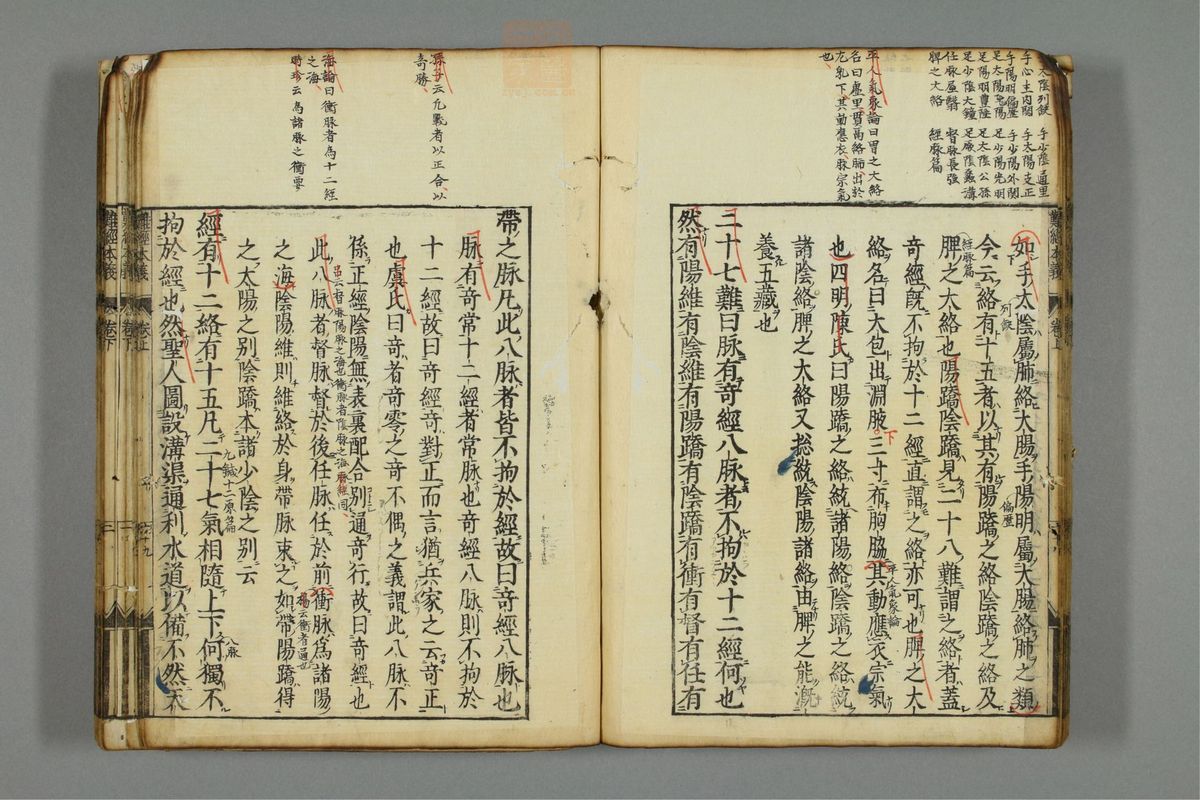 太陰列缺 手少陰通里
手心主內關 手太陽支正
手陽明偏歷 手少陽外關
足太陽飛陽 足少陽光明
足陽明豐隆 足太陰公孫
足少陰大鐘 足厥陰蠡溝
任脉屏翳 督脉長強
脾之大絡 經脉篇
平人氣象論曰胃之大絡
名曰虛里貫鬲絡肺出於
左乳下其動應衣脉宗氣
也
如手太陰屬肺絡大腸手陽明屬大腸絡肺之類
列缺
偏歷
今云絡有十五者以其有陽蹻之絡陰蹻之絡及
經脉篇
脾之大絡也陽蹻陰蹻見二十八難謂之絡者蓋
奇經既不拘於十二經直謂之絡亦可也脾之大
絡名曰大包出淵腋三寸布胸脇其動應衣宗氣
下
平人氣象論
也四明陳氏曰陽蹻之絡統諸陽絡陰蹻之絡統
諸陰絡脾之大絡又総統陰陽諸絡由脾之能漑
養五藏也
二十七難曰脉有奇經八脉者不拘於十二經何也
然有陽維有陰維有陽蹻有陰蹻有衝有督有任有
孫子云凡戰者以正合以
奇勝
海論曰衝脉者為十二經
之海
時珍云為諸脉之衝要
帶之脉凡此八脉者皆不拘於經故曰奇經八脉也
脉有奇常十二經者常脉也奇經八脉則不拘於
十二經故曰奇經奇對正而言猶兵家之云奇正
也虞氏曰奇者奇零之奇不偶之義謂此八脉不
係正經陰陽無表裏配合別道奇行故曰奇經也
此八脉者督脉督於後任脉任於前衝脉為諸陽
楊云衝者通也
之海陰陽維則維絡於身帶脉束之如帶陽蹻得
之太陽之別陰蹻本諸少陰之別云
九鍼十二原篇
經有十二絡有十五凡二十七氣相隨上下何獨不
八脉
拘於經也然聖人圖設溝渠通利水道以備不然天
難經本義 卷上
難經本義 卷下